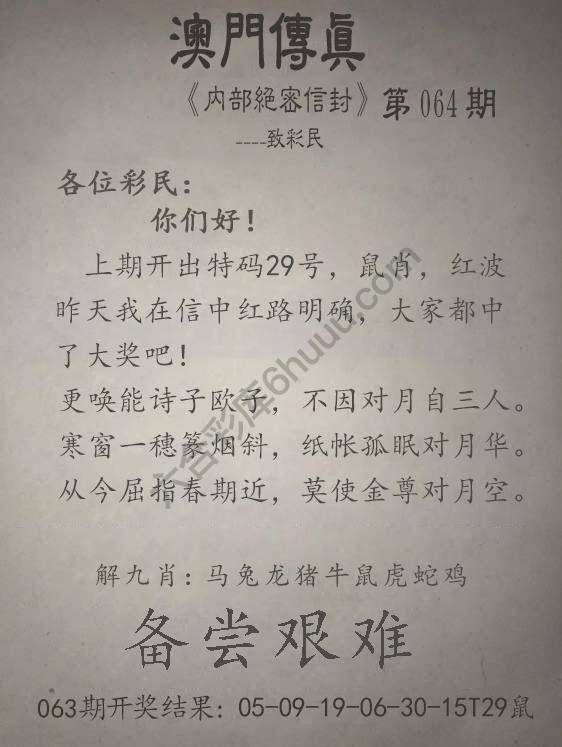 澳門傳眞
《内部絕密信封》第064期
----致彩民
各位彩民：
你们好！
上期开出特码29号，鼠肖，红波
昨天我在信中红路明确，大家都中
了大奖吧！
更唤能诗子欧子，不因对月自三人。
寒窗一穗篆烟斜，纸帐孤眠对月华。
从今屈指春期近，莫使金尊对月空。
解九肖：马兔龙猪牛鼠虎蛇鸡
备尝艰难
063期开奖结果：05-09-19-06-30-15T29鼠
六合彩库6huuu.com